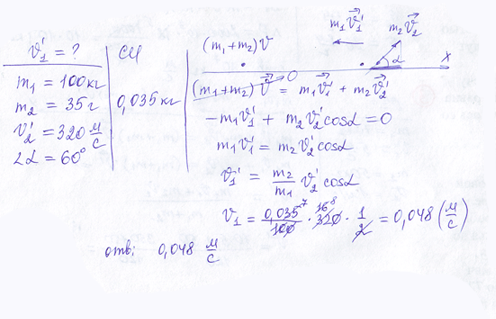 v₁' = ?
СИ
m₁ = 100 кг
m₂ = 35 г
0,035 кг
v₂' = 320 м/с
∠α = 60°
(m₁+m₂)v
m₁v⃗₁'
m₂v⃗₂'
α
x
(m₁+m₂)v⃗ = m₁v⃗₁' + m₂v⃗₂'
0
-m₁v₁' + m₂v₂'cosα = 0
m₁v₁' = m₂v₂'cosα
v₁' = m₂/m₁ v₂'cosα
v₁ = 0,035/100 · 320 · 1/2 = 0,048 (м/с)
отв: 0,048 м/с